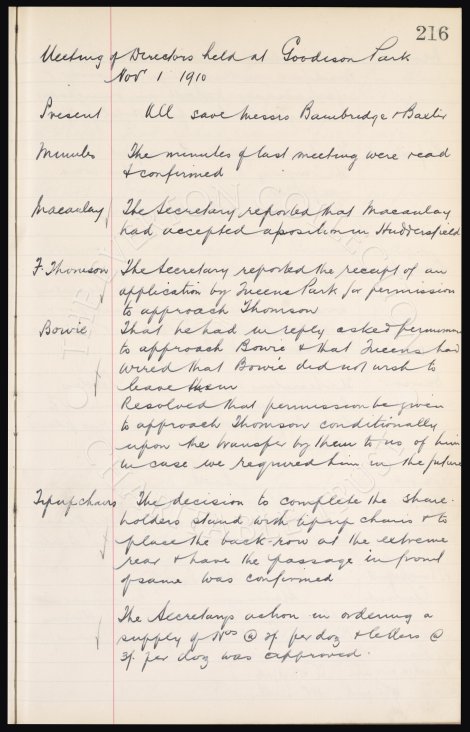 216
Meeting of Directors held at Goodison Park
Nov 1 1910
Present All save Messrs Bainbridge & Baxter
Minutes The minutes of last meeting were read
& confirmed
Macaulay The Secretary reported that Macaulay
had accepted a position in Huddersfield
F. Thomson The Secretary reported the receipt of an
application by Queens Park for permission
to approach Thomson
Bowie That he had in reply asked permission
to approach Bowie & that Queens had
wired that Bowie did not wish to
leave them
Resolved that permission be given
to approach Thomson conditionally
upon the transfer by them to us of him
in case we required him in the future
Tipup chairs The decision to complete the share-
holders stand with tipup chairs & to
place the back row at the extreme
rear & have the passage in front
of same was confirmed
The Secretarys action in ordering a
supply of Nos @ 2/- per doz & letters @
3/- per doz was approved.